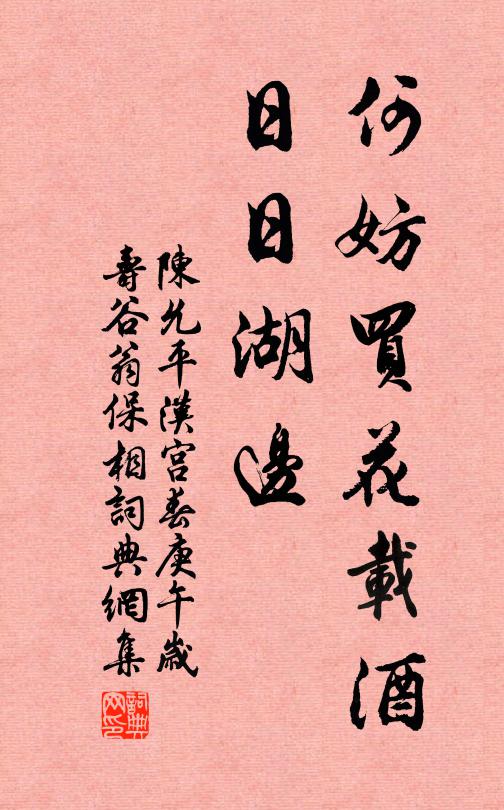 何妨買花載酒
日日湖邊
陳允平漢宮春庚午歲
壽谷翁保相詞典網集
詞典网印